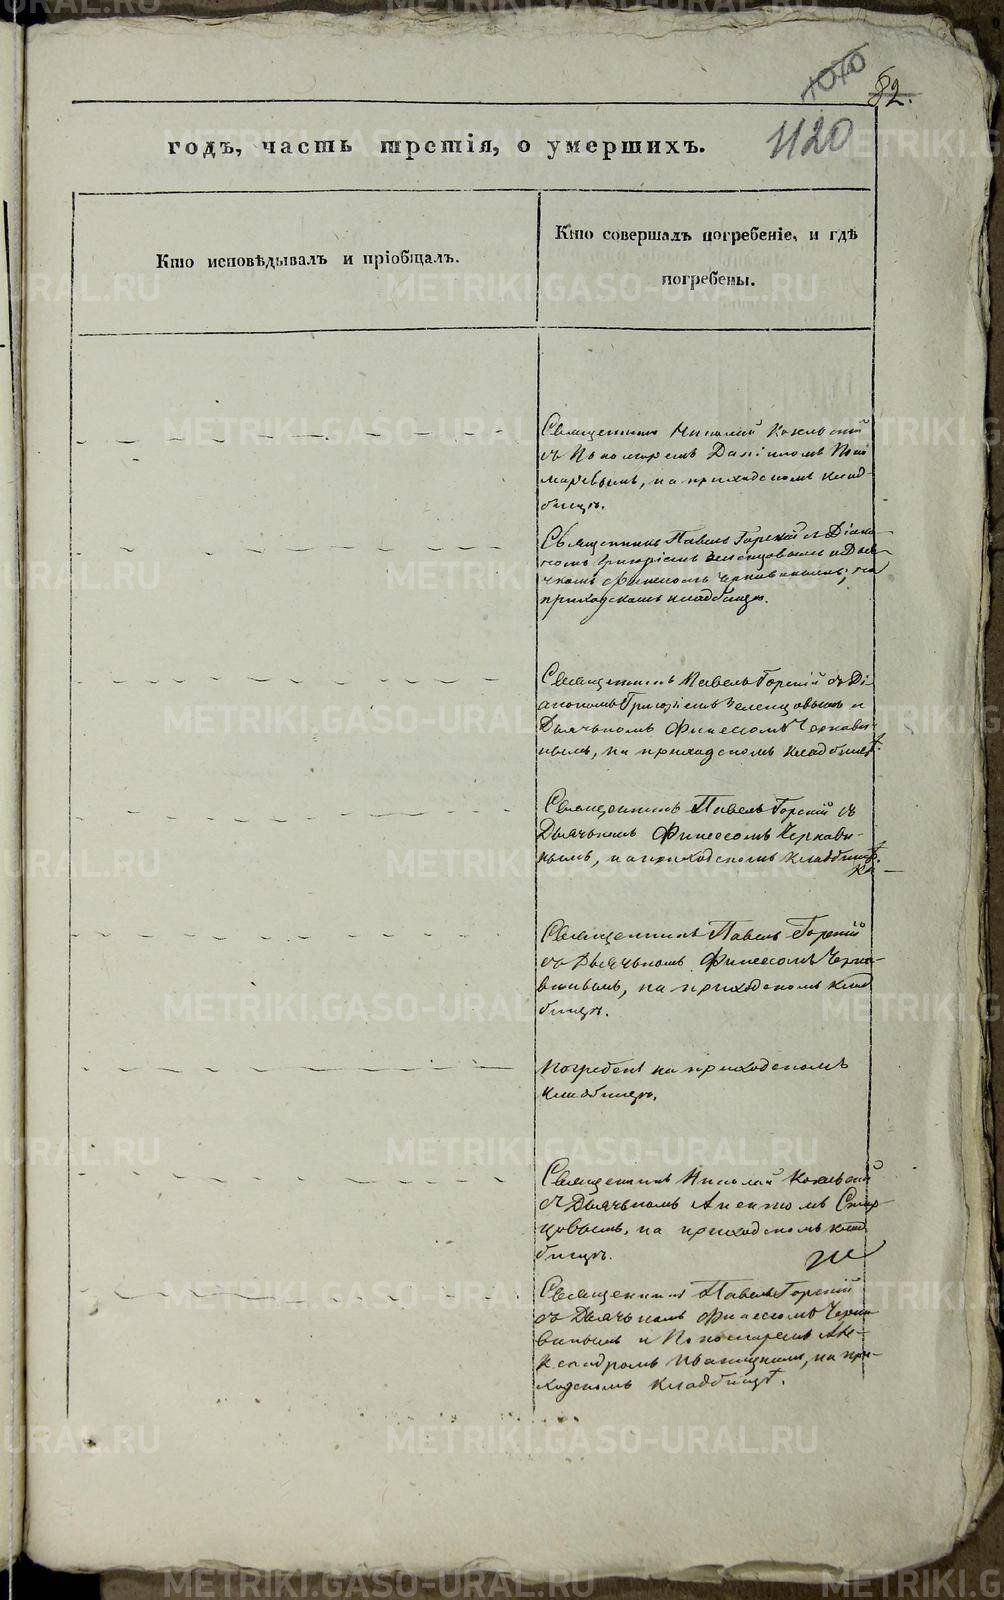 1010
82.
1120
годъ, часть третія, о умершихъ.
Кто исповѣдывалъ и пріобщалъ.
Кто совершалъ погребеніе, и гдѣ
погребены.
Священникъ Николай
съ Пономаремъ Даніиломъ Поно
маревымъ, на приходскомъ клад-
бищѣ.
Священникъ Павелъ Горскій съ Діако-
номъ Григоріемъ Зеленцовымъ и Дья-
чкомъ Финеесомъ Чернавинымъ, на
приходскомъ кладбищѣ.
Священникъ Павелъ Горскій съ Ді-
акономъ Григоріемъ Зеленцовымъ и
Дьячькомъ Финеесомъ Чернави-
нымъ, на приходскомъ кладбищѣ.
Священникъ Павелъ Горскій съ
Дьячькомъ Финеесомъ Чернави-
нымъ, на приходскомъ кладбищѣ.
Священникъ Павелъ Горскій
съ Дьячькомъ Финеесомъ Черна-
винымъ, на приходскомъ клад
бищѣ.
Погребенъ на приходскомъ
кладбищѣ.
Священникъ Николай
съ Дьячькомъ
на приходскомъ клад
бищѣ.
Священникъ Павелъ Горскій
съ Дьячькомъ Финеесомъ Черна-
винымъ и Пономаремъ Але-
ксандромъ на при-
ходскомъ кладбищѣ.
METRIKI.GASO-URAL.RU